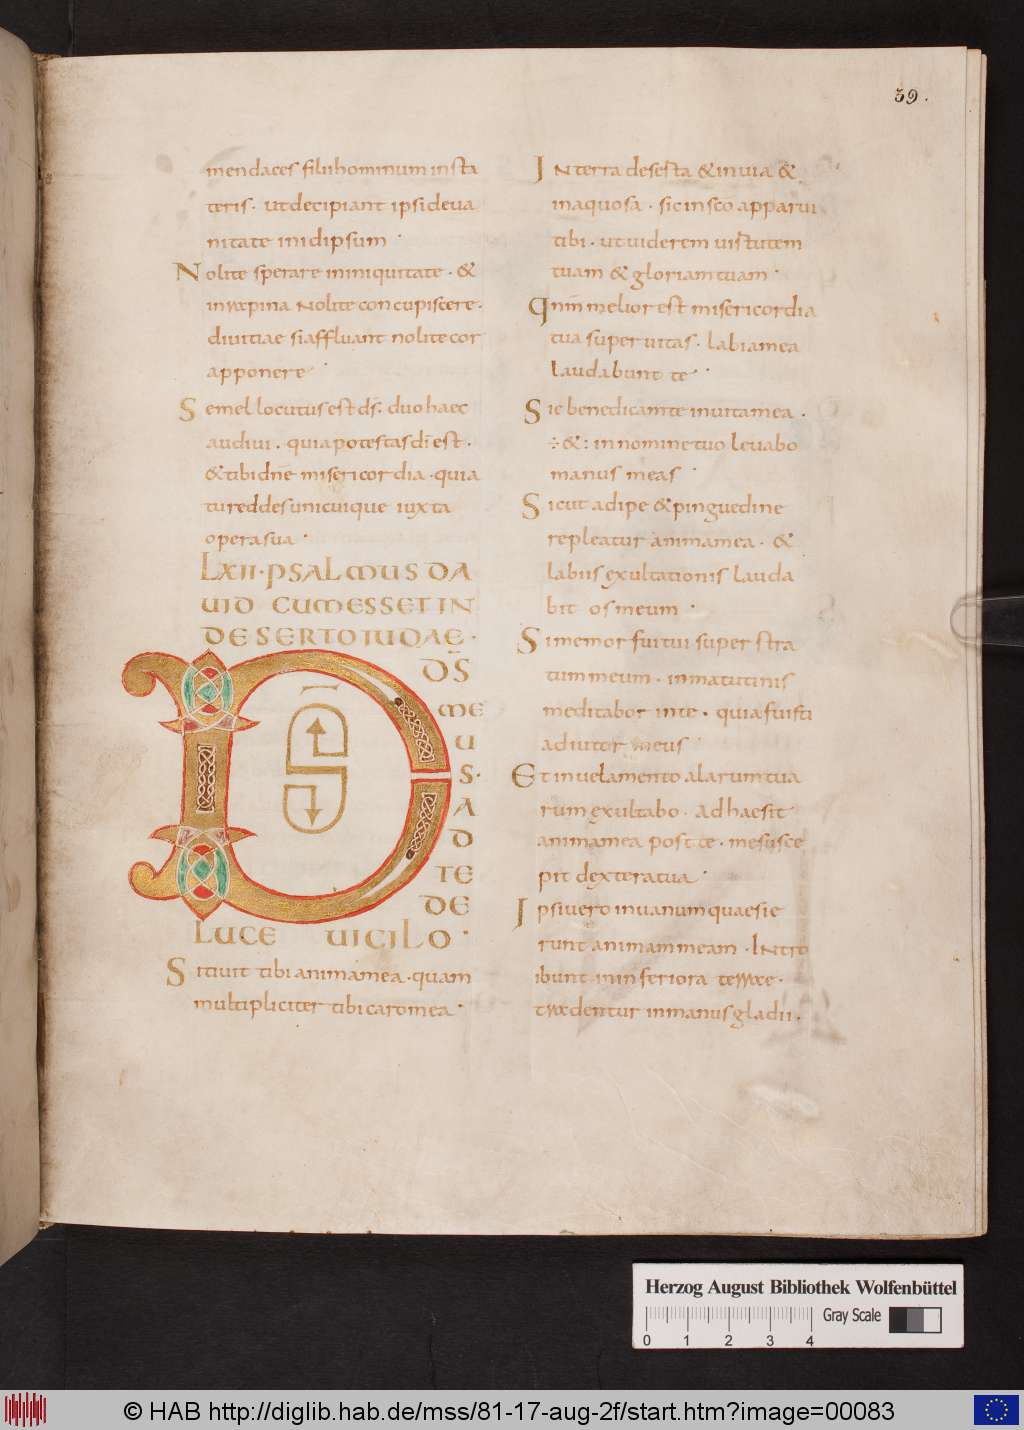 39.
mendaces filii hominum in sta
teris. ut decipiant ipsi de va
nitate in idipsum.
Nolite sperare in iniquitate. &
in rapina nolite concupiscere.
divitiae si affluant nolite cor
apponere.
Semel locutus est ds̄. duo haec
audivi. quia potestas dī est.
& tibi dn̄e misericordia. quia
tu reddes unicuique iuxta
opera sua.
LXII. PSALMUS DA
UID CUM ESSET IN
DESERTO IUDAE.
D̄S
ME
U
S.
A
D
TE
DE
LUCE UIGILO.
Sitiuit tibi anima mea. quam
multipliciter tibi caro mea.
In terra deserta & inuia &
inaquosa. sic in sco apparui
tibi. ut uiderem uirtutem
tuam & gloriam tuam.
Qnm̄ melior est misericordia
tua super vitas. labia mea
laudabunt te.
Sic benedicam te in uita mea.
÷ &: in nomine tuo levabo
manus meas
Sicut adipe & pinguedine
repleatur anima mea. &
labiis exultationis lauda
bit os meum.
Si memor fui tui super stra
tum meum. in matutinis
meditabor in te. quia fuisti
adiutor meus
Et in uelamento alarum tua
rum exultabo. adhaesit
anima mea post te. me susce
pit dextera tua.
Ipsi uero in uanum quaesie
runt animam meam. Intro
ibunt in inferiora terrae.
tradentur in manus gladii.
Herzog August Bibliothek Wolfenbüttel
Gray Scale
0 1 2 3 4
© HAB http://diglib.hab.de/mss/81-17-aug-2f/start.htm?image=00083